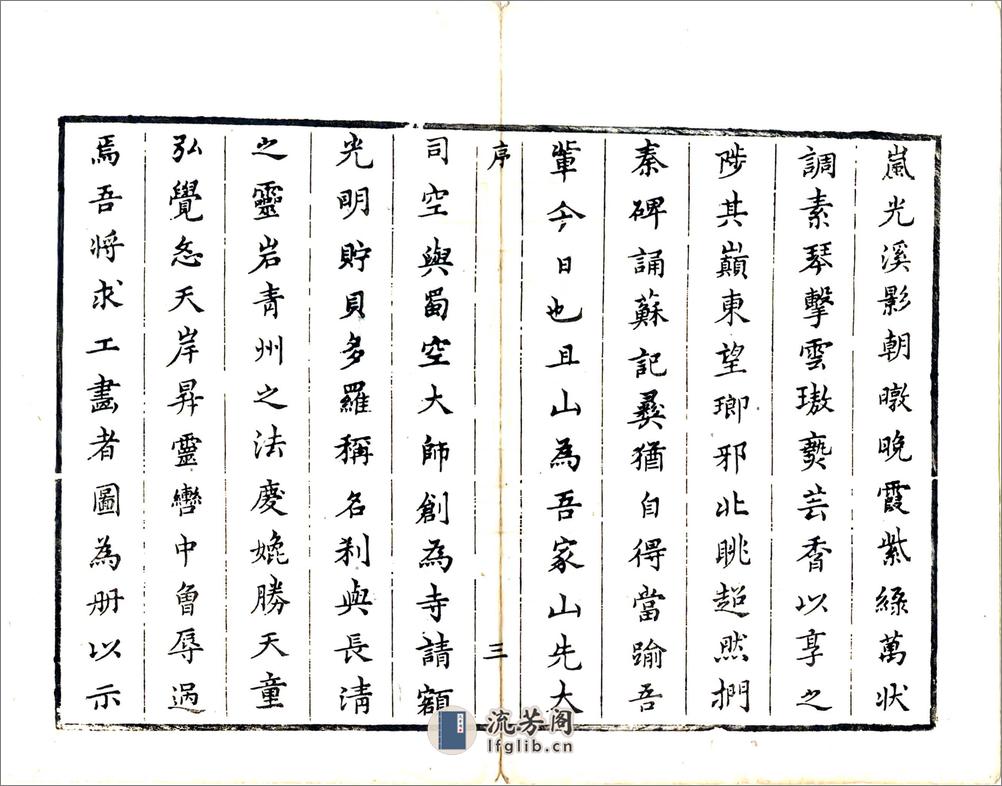 嵐光溪影朝暾晚霞紫綠萬狀
調素琴擊雲璈爇芸香以享之
陟其巔東望瑯邪北眺超然捫
秦碑誦蘇記彛猶自得當踰吾
輩今日也且山為吾家山先大
序 三
司空與蜀空大師創為寺請額
光明貯貝多羅稱名刹與長清
之靈岩青州之法慶媲勝天童
弘覺忞天岸昇靈轡中曾辱過
焉吾將求工畫者圖為册以示
流芳阁
lfglib.cn